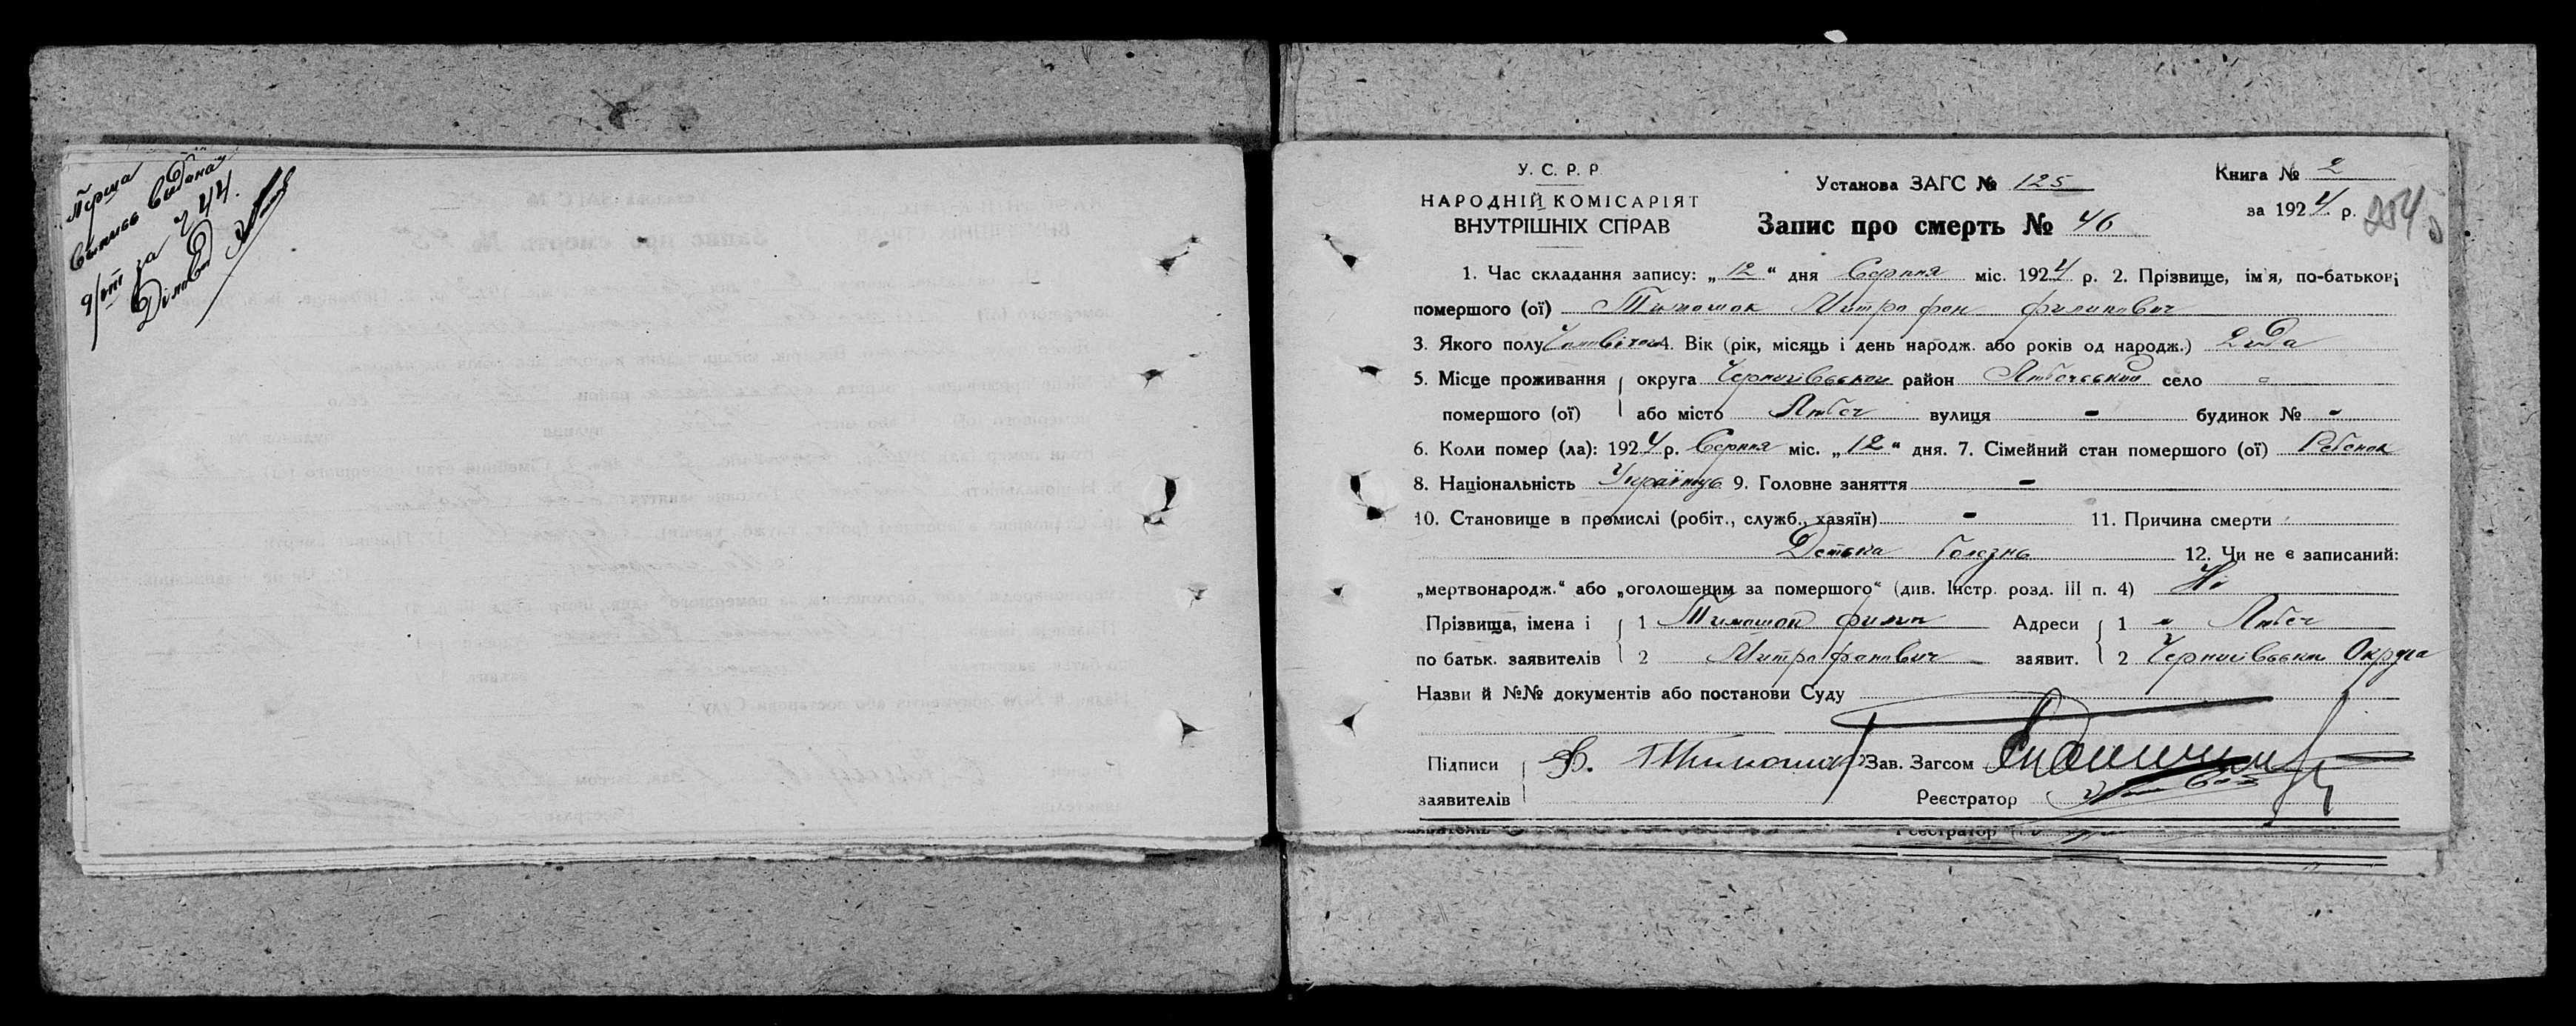 Перша
випись видана
за Ч 44.
Діловод
У. С. Р. Р
НАРОДНІЙ КОМІСАРІЯТ
ВНУТРІШНІХ СПРАВ
Установа ЗАГС № 125
Запис про смерть № 46
Книга № 2
за 1924 р.
1. Час складання запису: „12“ дня Серпня міс. 1924 р. 2. Прізвище, ім'я, по-батькові
помершого (ої) Тимошок Митрофан Филипович
3. Якого полу Чоловічог 4. Вік (рік, місяць і день народж. або років од народж.) 2 года
5. Місце проживання округа Чернигівської район Любечський село -
помершого (ої) або місто Любеч вулиця - будинок № -
6. Коли помер (ла): 1924 р. Серпня міс. „12“ дня. 7. Сімейний стан помершого (ої) Ребенок
8. Національність Українець 9. Головне заняття -
10. Становище в промислі (робіт., служб., хазяїн) - 11. Причина смерти
Детька болезнь 12. Чи не є записаний:
„мертвонародж.“ або „оголошеним за помершого“ (див. Інстр. розд. III п. 4) Ні
Прізвища, імена і 1 Тимошок Филип Адреси 1 м Любеч
по батьк. заявителів 2 Митрофанович заявит. 2 Чернигівська Округа
Назви й №№ документів або постанови Суду
Підписи Ф. Тимошок Зав. Загсом
заявителів Реєстратор
Реєстратор